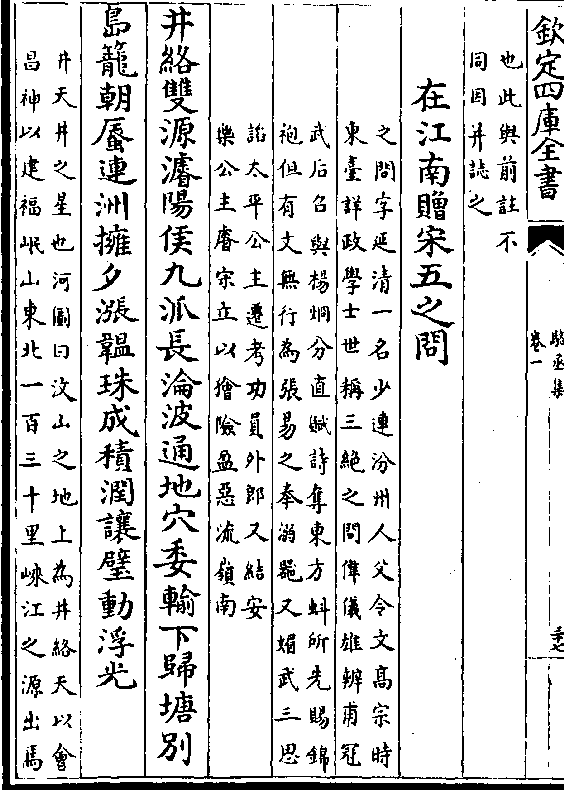 欽定四庫全書
駱丞集
卷一
三十七
也此與前註不
同因并誌之
在江南贈宋五之問
之問字延清一名少連汾州人父令文高宗時
東臺詳政學士世稱三絶之問偉儀雄辨甫冠
武后召與楊烱分直賦詩奪東方虬所先賜錦
袍但有文無行為張易之奉溺器又媚武三思
諂太平公主遷考功員外郎又結安
樂公主睿宗立以獪險盈惡流嶺南
井絡雙源濬陽侯九派長淪波通地穴委輸下歸塘别
島籠朝蜃連洲擁夕漲韞珠成積潤讓璧動浮光
井天井之星也河圖曰汶山之地上為井絡天以會
昌神以建福岷山東北一百三十里崍江之源出焉